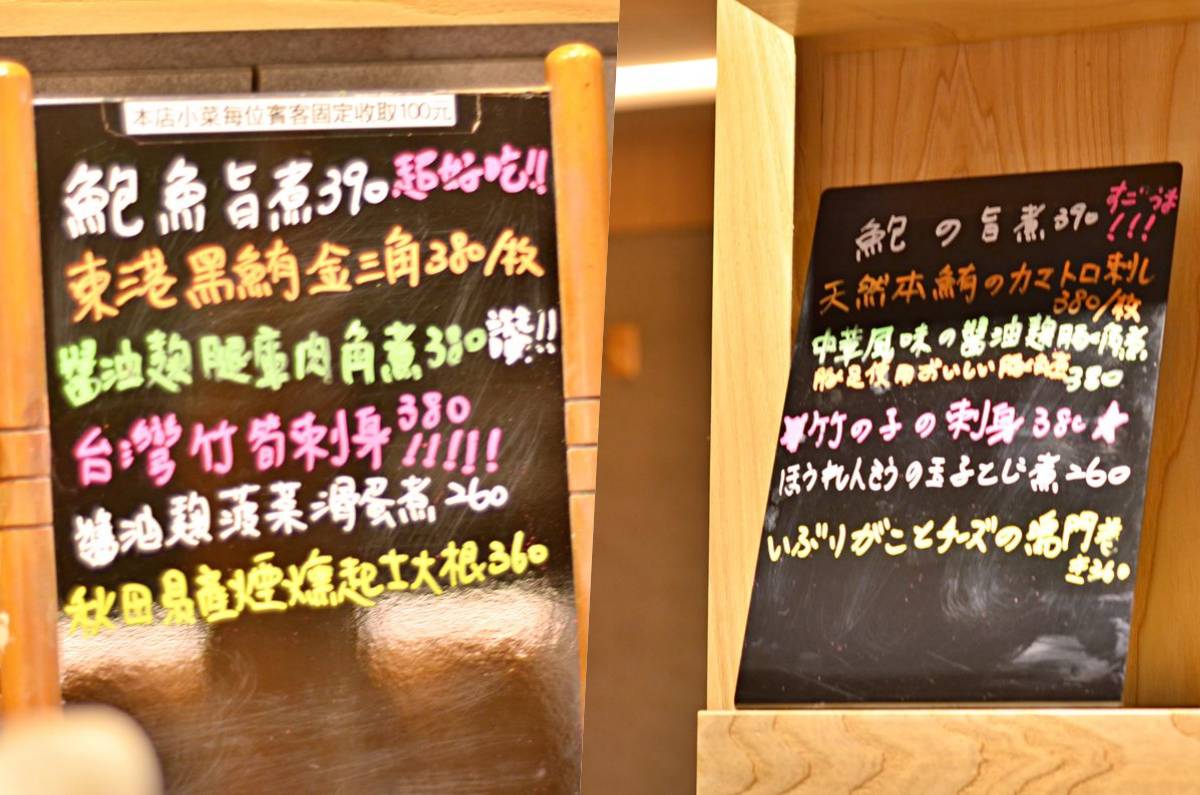 本店小菜每位賓客固定收取100元
鮑魚旨煮390超好吃!!
東港黑鮪金三角380/枚
醬油麹腿庫肉角煮380讚!!
台灣竹筍刺身380!!!!!
醬油麹菠菜滑蛋煮260
秋田县產煙燻起士大根360
鮑の旨煮390すごうま!!!
天然本鮪のカマトロ刺し
380/枚
中華風味の醤油麹豚角煮
豚足使用おいしい豚角煮380
★竹の子の刺身380★
ほうれんそうの玉子とじ煮260
いぶりがことチーズの鳴門巻
き360